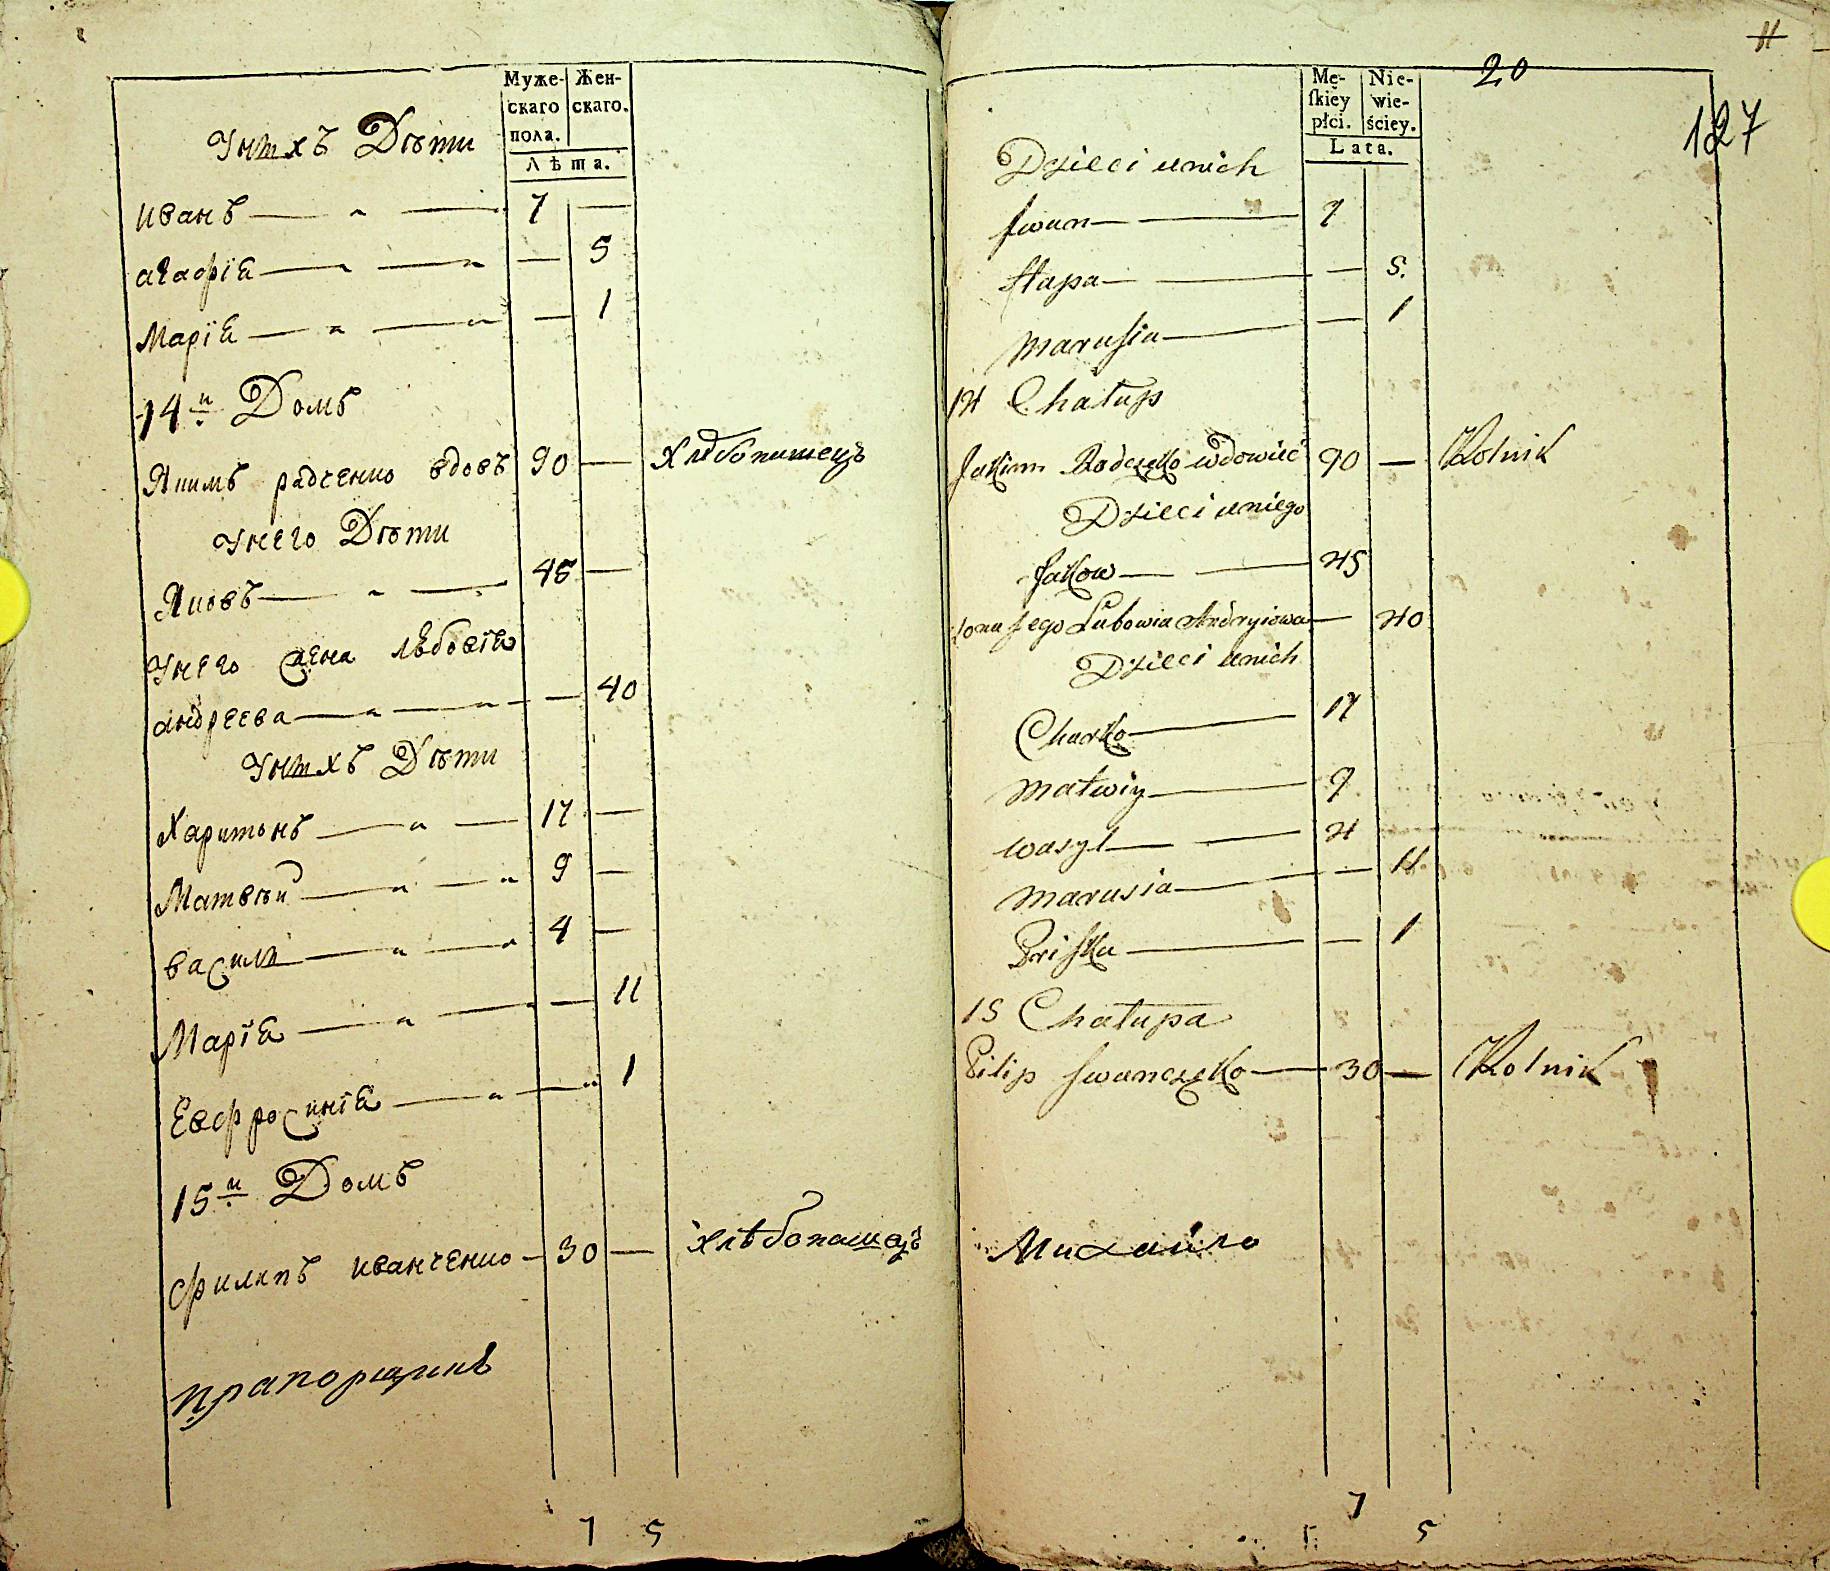 Муже-
скаго
пола.
Жен-
скаго.
Лѣта.
У нихъ Дѣти
иванъ 7
агафїа 5
Марїа 1
14й Домъ
Якимъ радченко вдовъ 90 — хлѣбопашецъ
У него Дѣти
Яковъ 45
У него жена любовїа
андреева 40
У нихъ Дѣти
Харитонъ 17
Матвѣй 9
василі 4
Марїа 11
Евфросинїа 1
15й Домъ
филипъ иванченко 30 — хлѣбопашецъ
прапорщикъ
7 5
11
20
127
Mę-
ſkiey
płci.
Nie-
wie-
ściey.
Lata.
Dzieci u nich
Jwan 7
Hapa 5.
Marusia 1
14 Chałup
Jakim Radczeko wdowiec 90 — Rolnik
Dzieci u niego
Jakow 45
Zona Jego Lubowia Andryiowa 40
Dzieci u nich
Charko 17
Matwiy 9
Wasyl 4
Marusia 11
Priska 1
15 Chałupa
Pilip Jwanczeko 30 — Rolnik
Михайло
7
5